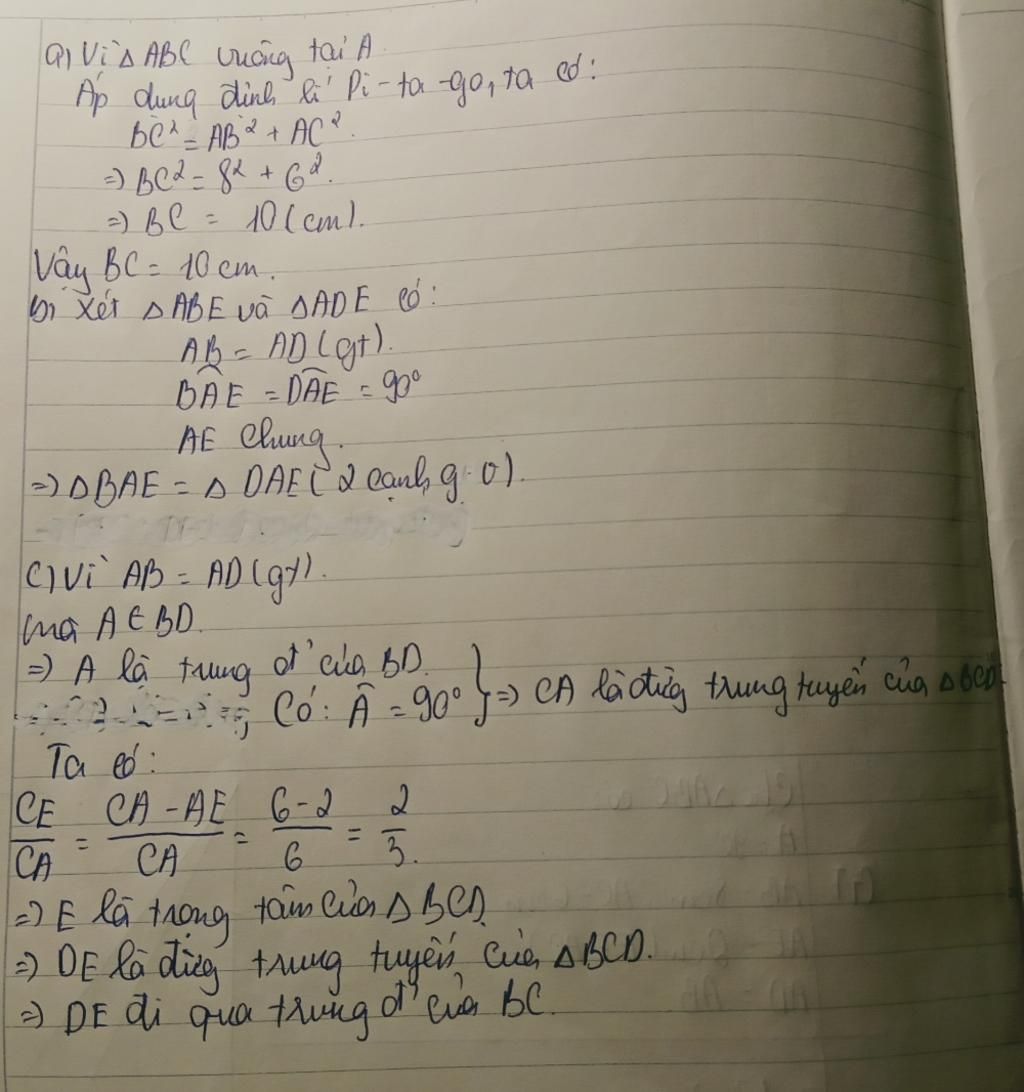 a) Vì △ABC vuông tại A
Áp dụng định lí Pi-ta-go, ta có:
BC² = AB² + AC².
=) BC² = 8² + 6².
=) BC = 10 (cm).
Vậy BC = 10 cm.
b) Xét △ABE và △ADE có:
AB = AD (gt).
BÂE = DÂE = 90°
AE chung.
=) △BAE = △DAE (2 cạnh g.v).
c) Vì AB = AD (gt).
mà A ∈ BD.
=) A là trung đ' của BD.
Có: Â = 90° } =) CA là đừg trung tuyến của △BCD.
Ta có:
CE/CA = (CA - AE)/CA = (6-2)/6 = 2/3.
=) E là trọng tâm của △BCD.
=) DE là đừg trung tuyến của △BCD.
=) DE đi qua trung đ' của BC.